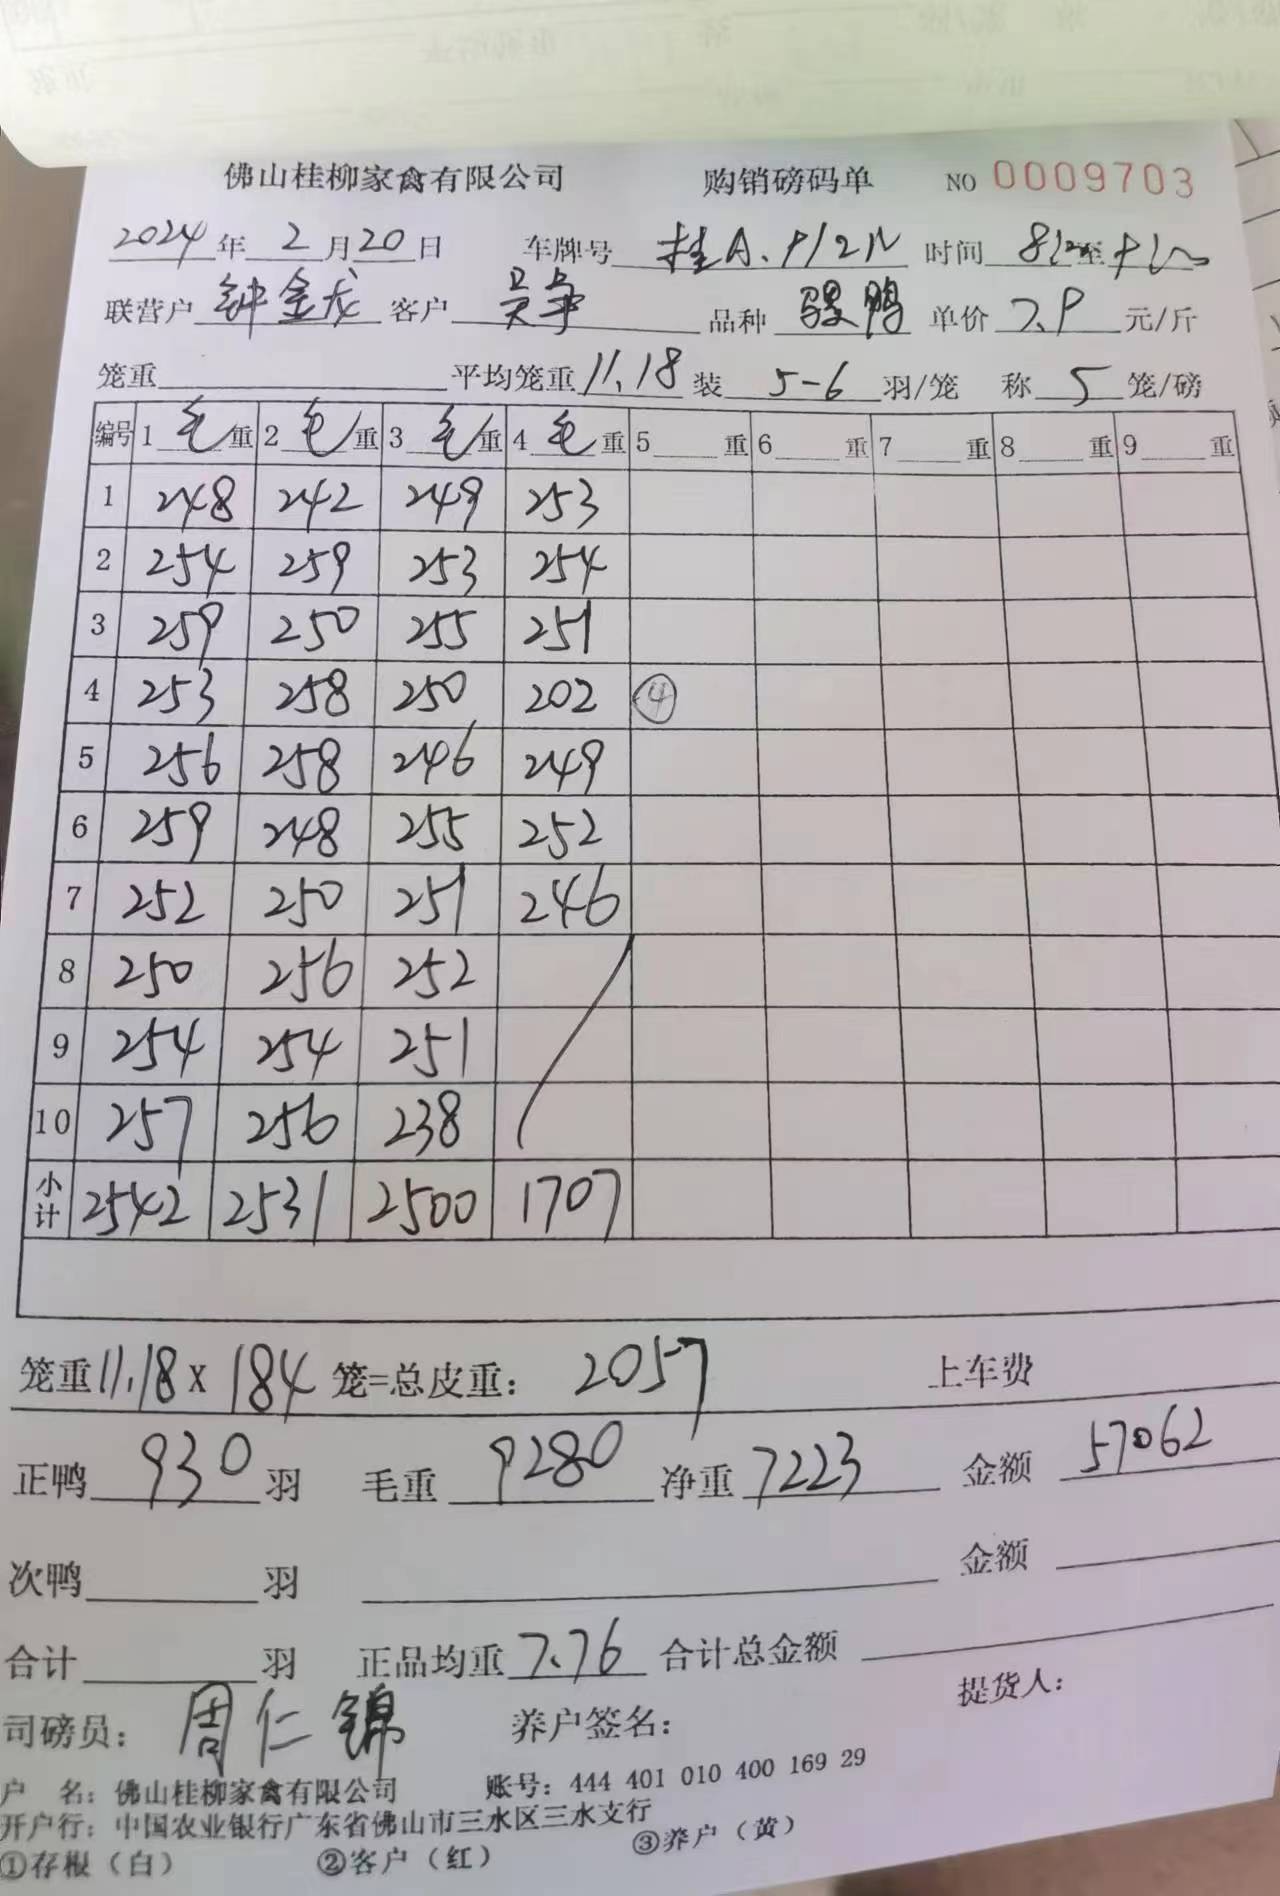 佛山桂柳家禽有限公司 购销磅码单 NO 0009703
2024年 2月20日 车牌号 桂A. 时间 至
联营户 钟金龙 客户 吴争 品种 骡鸭 单价 7.9 元/斤
笼重 平均笼重 11.18 装 5-6 羽/笼 称 5 笼/磅
编号 1 毛 重 2 毛 重 3 毛 重 4 毛 重 5 重 6 重 7 重 8 重 9 重
1 248 242 249 253
2 254 259 253 254
3 259 250 255 251
4 253 258 250 202 ④
5 256 258 246 249
6 259 248 255 252
7 252 250 251 246
8 250 256 252
9 254 254 251
10 257 256 238
小计 2542 2531 2500 1707
笼重11.18 X 184 笼=总皮重: 2057 上车费
正鸭 930 羽 毛重 9280 净重 7223 金额 57062
次鸭 羽 金额
合计 羽 正品均重 7.76 合计总金额
司磅员: 周仁锦 养户签名: 提货人:
户 名: 佛山桂柳家禽有限公司 账号: 444 401 010 400 169 29
开户行: 中国农业银行广东省佛山市三水区三水支行
①存根（白） ②客户（红） ③养户（黄）